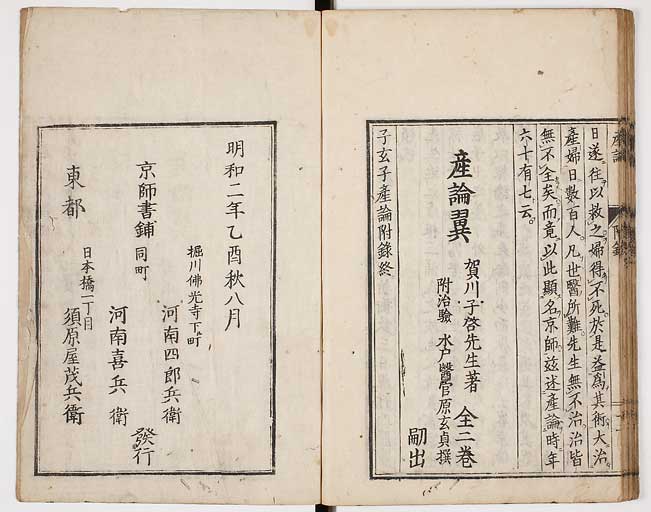 産論 附錄
日遂往以救之婦得不死於是益爲其術大治
產婦日數百人凡世醫所難先生無不治治皆
無不全矣而竟以此顯名京師玆述産論時年
六十有七云
產論翼 賀川子啓先生著 全二卷
附治驗 水戸醫官原玄貞撰 嗣出
子玄子產論附錄終
明和二年乙酉秋八月
堀川佛光寺下町
京師書鋪 河南四郎兵衛
同町 河南喜兵衛
發行
日本橋一丁目
東都 須原屋茂兵衛